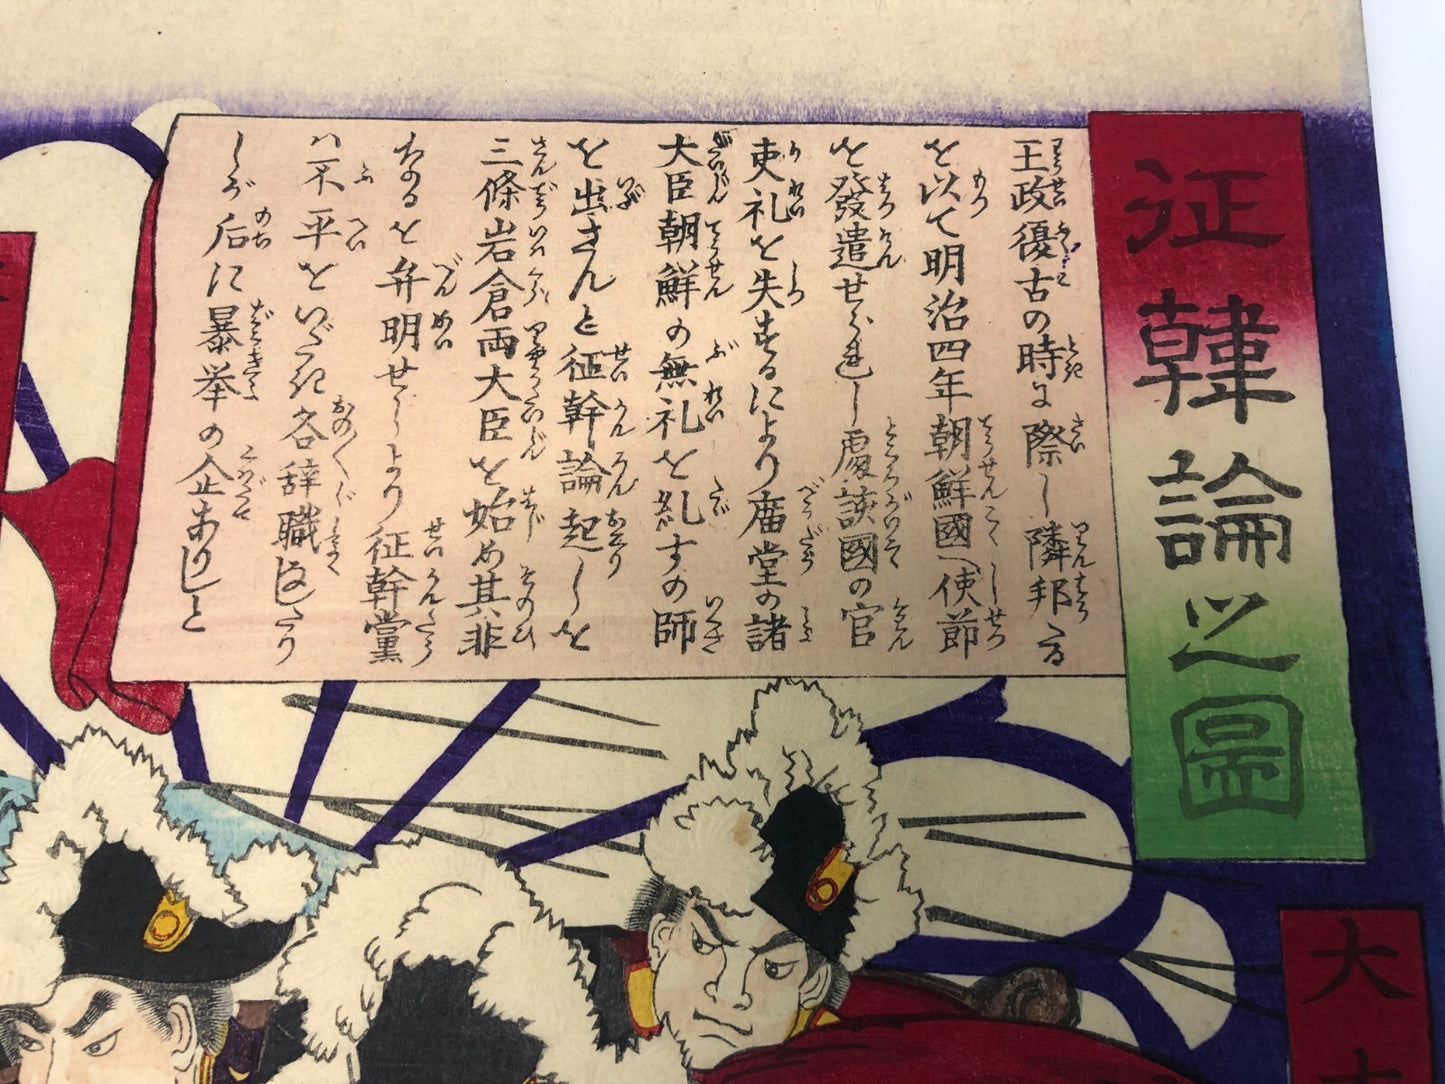 征韓論之圖
王政復古の時に際し隣邦たる
を以て明治四年朝鮮國へ使節
を發遣せられし處該國の官
吏礼を失するにより庿堂の諸
大臣朝鮮の無礼を糺すの師
を出さんと征幹論起しを
三條岩倉両大臣を始め其非
なるを弁明せしより征幹黨
ハ不平をいだき各辞職なしたり
しが后に暴挙の企ありしと
大